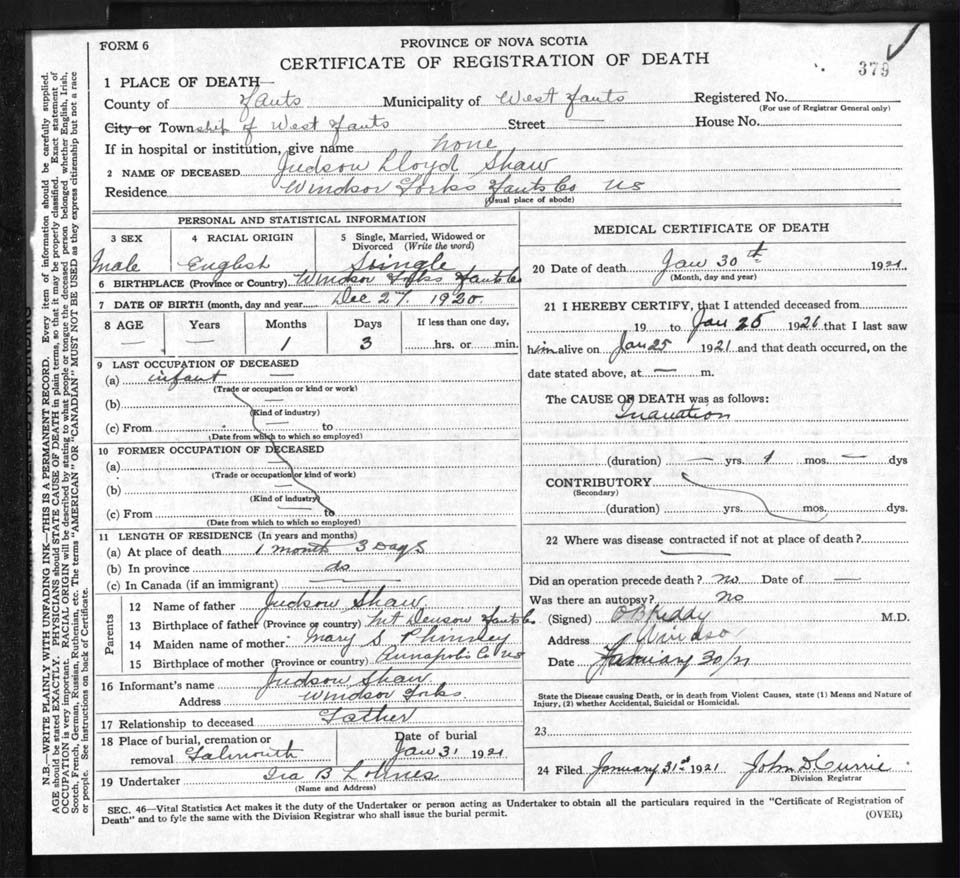 FORM 6
PROVINCE OF NOVA SCOTIA
CERTIFICATE OF REGISTRATION OF DEATH
379
1 PLACE OF DEATH—
County of Hants Municipality of West Hants Registered No.
(For use of Registrar General only)
City or Township of West Hants Street — House No.
If in hospital or institution, give name none
2 NAME OF DECEASED Judson Lloyd Shaw
Residence Windsor Forks Hants Co NS
(Usual place of abode)
PERSONAL AND STATISTICAL INFORMATION
3 SEX 4 RACIAL ORIGIN 5 Single, Married, Widowed or Divorced (Write the word)
Male English Single
6 BIRTHPLACE (Province or Country) Windsor Forks Hants Co
7 DATE OF BIRTH (month, day and year) Dec 27. 1920.
8 AGE Years Months Days If less than one day,
— — 1 3 hrs. or min.
9 LAST OCCUPATION OF DECEASED
(a) infant —
(Trade or occupation or kind or work)
(b) —
(Kind of industry)
(c) From to
(Date from which to which so employed)
10 FORMER OCCUPATION OF DECEASED
(a) —
(Trade or occupation or kind of work)
(b) —
(Kind of industry)
(c) From to
(Date from which to which so employed)
11 LENGTH OF RESIDENCE (In years and months)
(a) At place of death 1 month 3 Days
(b) In province do
(c) In Canada (if an immigrant) —
Parents
12 Name of father Judson Shaw
13 Birthplace of father (Province or country) Mt Denson Hants Co
14 Maiden name of mother Mary S Phinney
15 Birthplace of mother (Province or country) Annapolis Co NS
16 Informant's name Judson Shaw
Address Windsor Forks
17 Relationship to deceased Father
18 Place of burial, cremation or removal Falmouth Date of burial Jan 31 1921
19 Undertaker Ira B Lohnes
(Name and Address)
MEDICAL CERTIFICATE OF DEATH
20 Date of death Jan 30th 1921
(Month, day and year)
21 I HEREBY CERTIFY, that I attended deceased from
19 to Jan 25 1921 that I last saw
him alive on Jan 25 1921 and that death occurred, on the
date stated above, at — m.
The CAUSE OF DEATH was as follows:
Inanation
(duration) — yrs. 1 mos. — dys
CONTRIBUTORY
(Secondary)
(duration) yrs. mos. dys.
22 Where was disease contracted if not at place of death?
Did an operation precede death? No Date of —
Was there an autopsy? No
(Signed) O B Keddy M.D.
Address Windsor
Date January 30/21
State the Disease causing Death, or in death from Violent Causes, state (1) Means and Nature of
Injury, (2) whether Accidental, Suicidal or Homicidal.
23
24 Filed January 31st 1921 John D Currie
Division Registrar
SEC. 46—Vital Statistics Act makes it the duty of the Undertaker or person acting as Undertaker to obtain all the particulars required in the "Certificate of Registration of
Death" and to fyle the same with the Division Registrar who shall issue the burial permit.
(OVER)
N.B.—WRITE PLAINLY WITH UNFADING INK—THIS IS A PERMANENT RECORD. Every item of information should be carefully supplied.
AGE should be stated EXACTLY. PHYSICIANS should STATE CAUSE OF DEATH in plain terms, so that it may be properly classified. Exact statement of
OCCUPATION is very important. RACIAL ORIGIN will be described by stating to what people or tongue the deceased person belonged whether English, Irish,
Scotch, French, German, Russian, Ruthenian, etc. The terms "AMERICAN" OR "CANADIAN" MUST NOT BE USED as they express citizenship but not a race
or people. See instructions on back of Certificate.